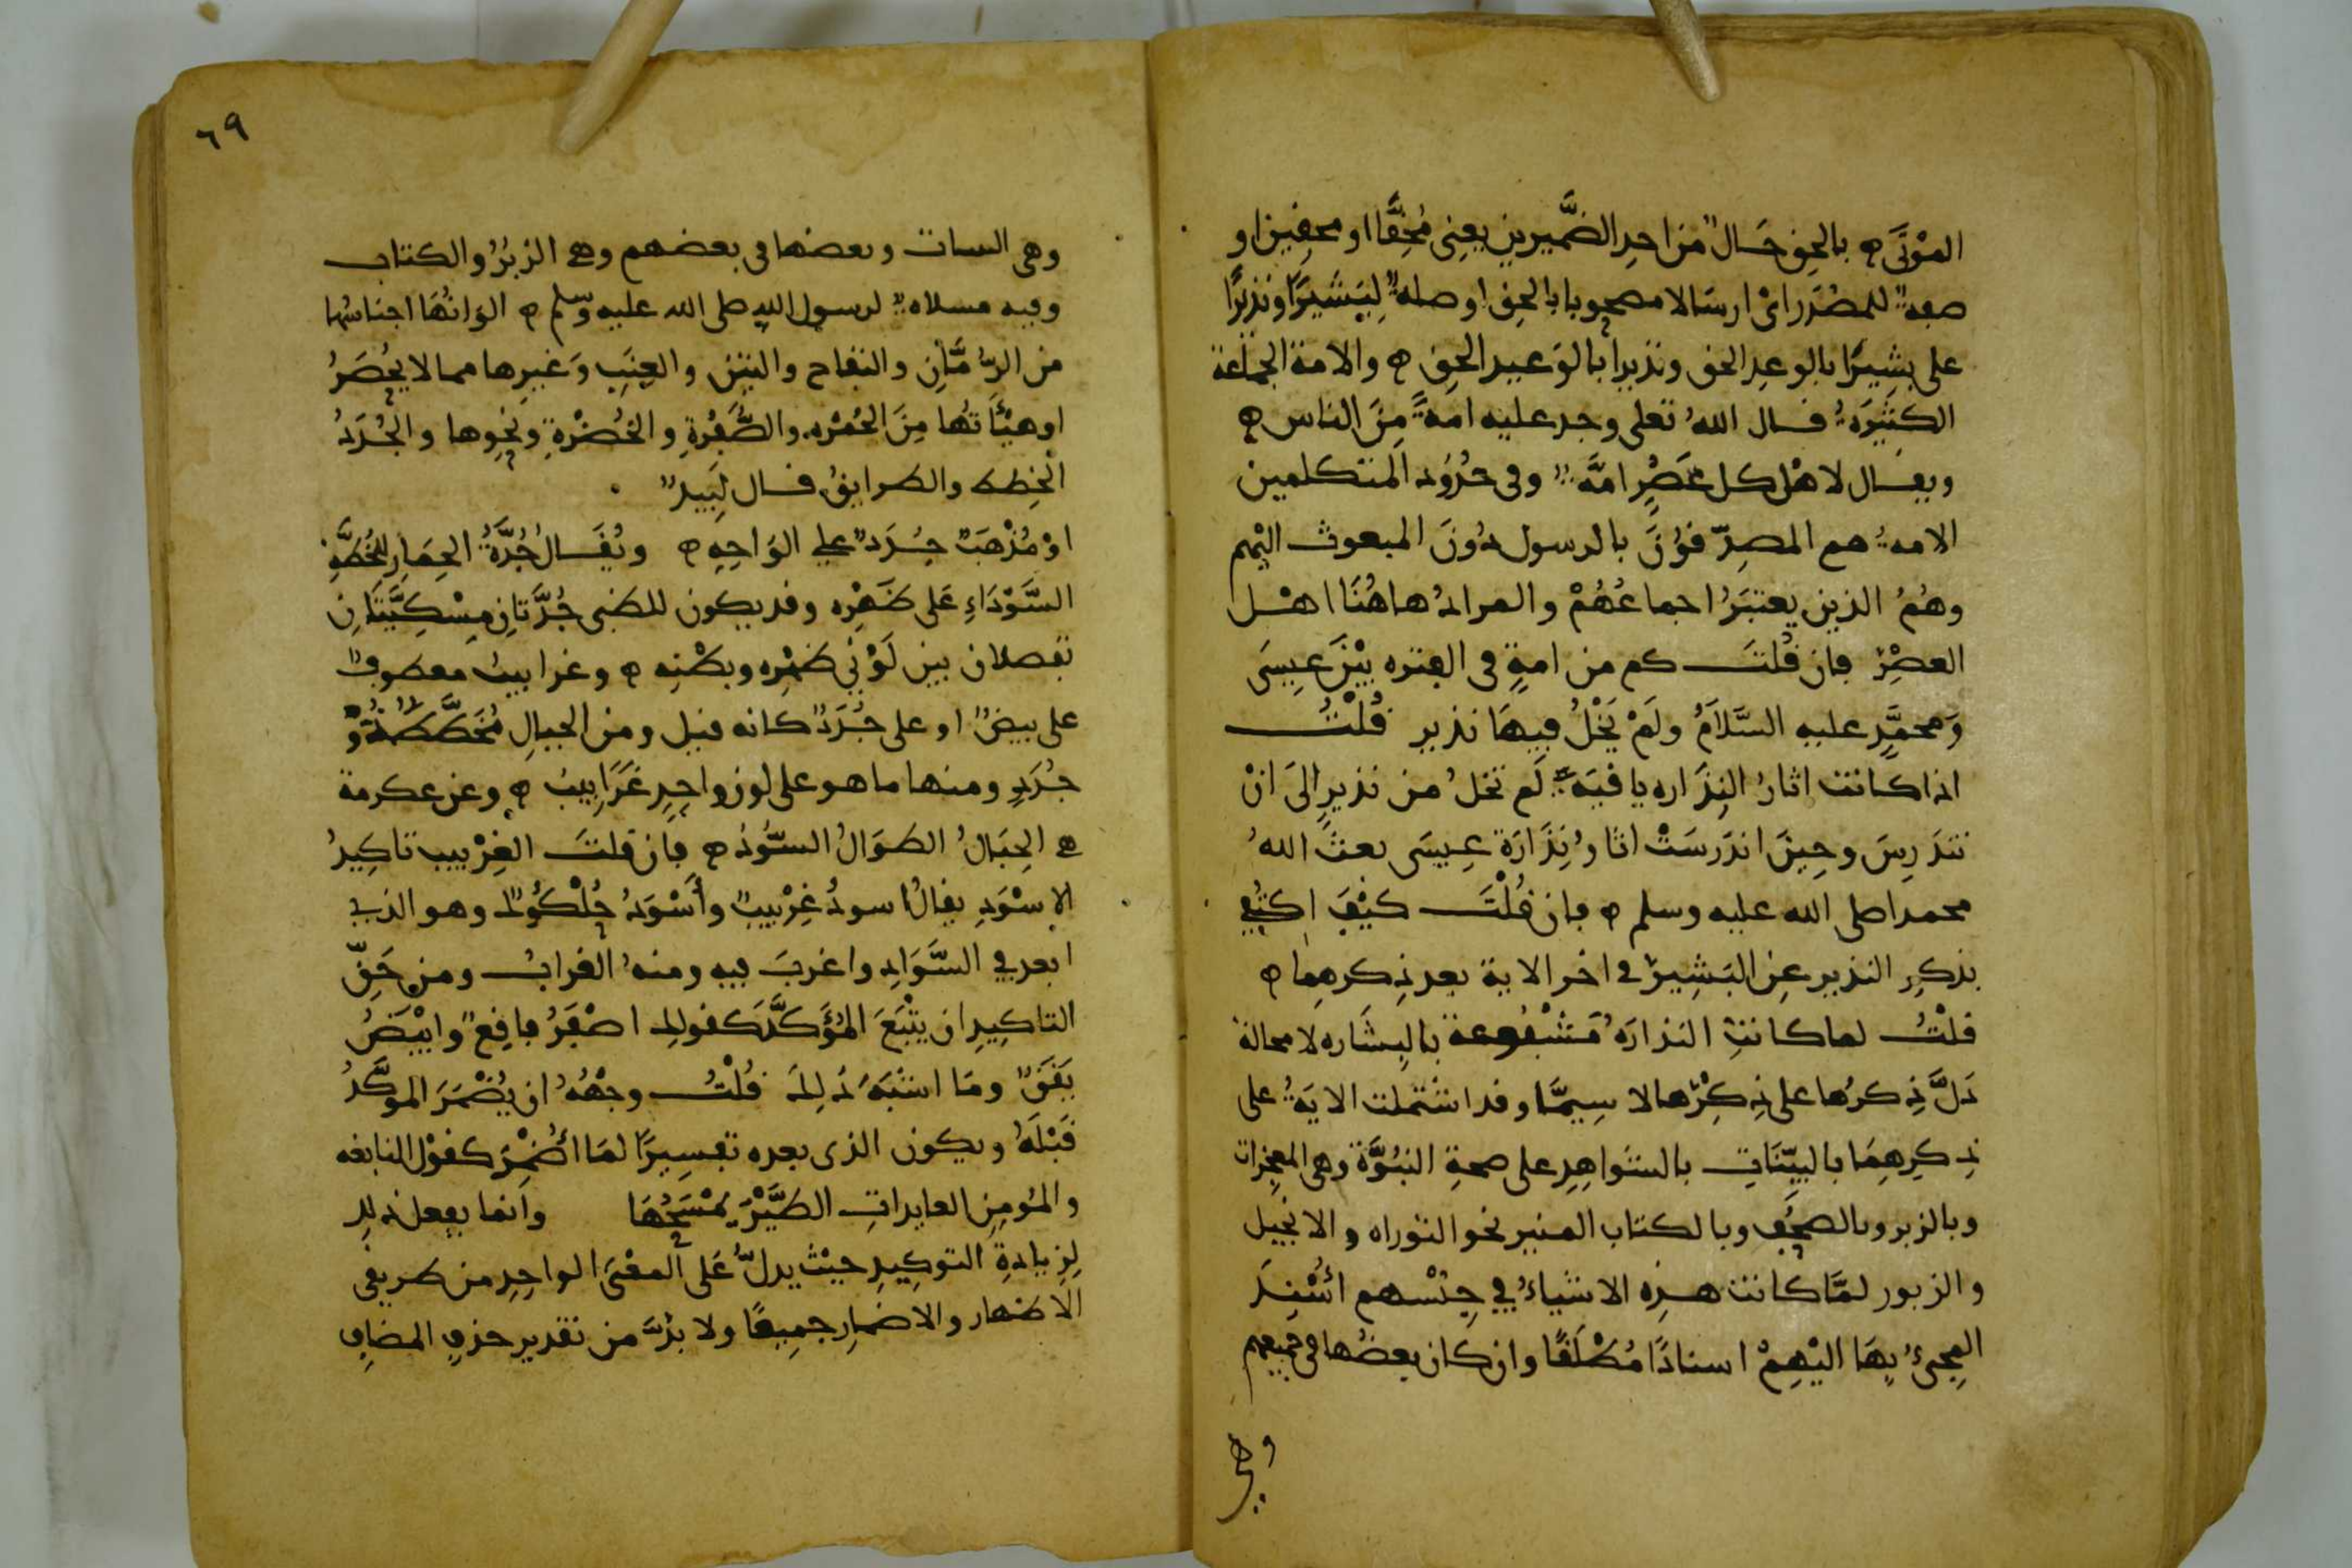 الموْتَى بالحق حَال من احدِ الضَّميرين يعنِى مُحِقًّا او محقين او
صفة للمصْدَر اىْ ارسَالا مصحوبا بالحق او صلة لِبَشيرًا ونذيرًا
على بشِيرًا بالوعدِ الحق ونذيرا بالوَعيد الحق والامة الجماعة
الكثيرَةُ قال اللهُ تعلى وجد عليه امةً مِنَ الناس
ويقال لاهْل كل عَصْرٍ امَّة وفى حُدُود المتكلمين
الامةُ هم المصدّقوُنَ بالرسول دُونَ المبعوث اليْهم
وهُمُ الذين يعتبَرُ اجماعُهُمْ والمرادُ هاهُنَا اهْل
العصْرِ فان قُلتَ كم من امةٍ فى الفتره بيْنَ عِيسَى
وَمحمَّدٍ عليه السَّلاَمُ ولَمْ يَخْلُ فيهَا نذير قُلْتُ
اذا كانت اثارُ النِذَاره باقيَةً لَم تخلُ من نذيرٍ الىَ انْ
تندَرِسَ وحِينَ اندَرسَتْ اثارُ نِذَارَة عِيسَى بعثَ اللهُ
محمدا صلى الله عليه وسلم فان قُلْتَ كيْفَ اكتُفِي
بذكرِ النذير عنِ البَشِيرِ في اخر الاية بعد ذِكرهِما
قلْتُ لما كانتِ النذارَةُ مَشْفُوعة بالبِشَاره لا محالة
دَلَّ ذِكرُها على ذِكِرْها لا سِيمَّا وقد اشتملت الايَةُ على
ذِكرِهِمَا بالبيّنَاتِ بالشواهِدِ على صحةِ النبُوَّة وهى المعجزات
وبالزبر وبالصحُفِ وبالكتاب المنير نحو التوراه والانجيل
والزبور لمَّا كانت هذِه الاشياءُ فِي جِنْسهم اسْنِدَ
المجىءُ بِهَا اليْهِمْ اسنادًا مُطْلَقًا وان كان بعضُها فى جميعهم
وهي
٦٩
وهى البينات وبعضها فى بعضهم وهى الزبُرُ والكتاب
وفيه مسلاة لرسول الله صلى الله عليه وسلم الوَانُهَا اجناسُها
من الرُّمَّانِ والتفاح والتين والعِنَبِ وَغيرِها مما لا يُحْصَرُ
او هيْئَاتُها مِنَ الحُمْرَه والصُّفْرَةِ والخُضْرةِ ونحوِها والجُدَدُ
الخِطط والطرايقُ قال لَبِيد
اوْ مُذْهَبٌ جُدَدٌ علي الوَاحِهِ ويُقَال جُدَّةُ الحِمَارِ للخُطَّةِ
السَّوْدَاءِ عَلى ظَهْرِه وقد يكون للظبى جُدَّتانِ مِسْكِيَّتَانِ
تفصلان بين لَوْنَيْ ظهْرِه وبطْنِه وغرابيبُ معطوفٌ
على بيضٌ او على جُدَدٌ كانه قيل ومن الجبالِ مُخَطَّطٌ ذُو
جُدَدٍ ومنها ما هو على لونٍ واحِدٍ غَرَابِيبُ وعن عكرمة
هى الجِبَالُ الطوَالُ السُّودُ فان قلتَ الغِرْبيب تاكِيدُ
الاسْوَدِ يقالُ اسودُ غِرْبِيبٌ وأَسْوَدُ حُلْكُوكٌ وهو الذي
ابعد في السَّوَادِ واغربَ فيه ومنهُ الغراب ومن حَقِّ
التاكِيدِ ان يتْبَعَ المُؤَكَّدَ كقولك اصْفَرُ فاقِعٌ وابْيَضُ
يَقَقٌ ومَا اشبَهَ ذَلِكَ قُلْتُ وجْهُهُ ان يُضْمَرَ المُوكَّدُ
قَبْلَهُ ويكون الذى بعده تفسِيرًا لمَا اضْمِرَ كقوْل النابغه
والمُومِنِ العايذاتِ الطَّيْرَ يَمْسَحُهَا وانما يفعل ذلك
لِزيادةِ التوكِيدِ حيْث يدلُّ عَلى المعْنى الواحِدِ من طريقي
الاظهار والاضمارِ جمِيعًا ولا بدَّ من تقدير حذفِ المضاف